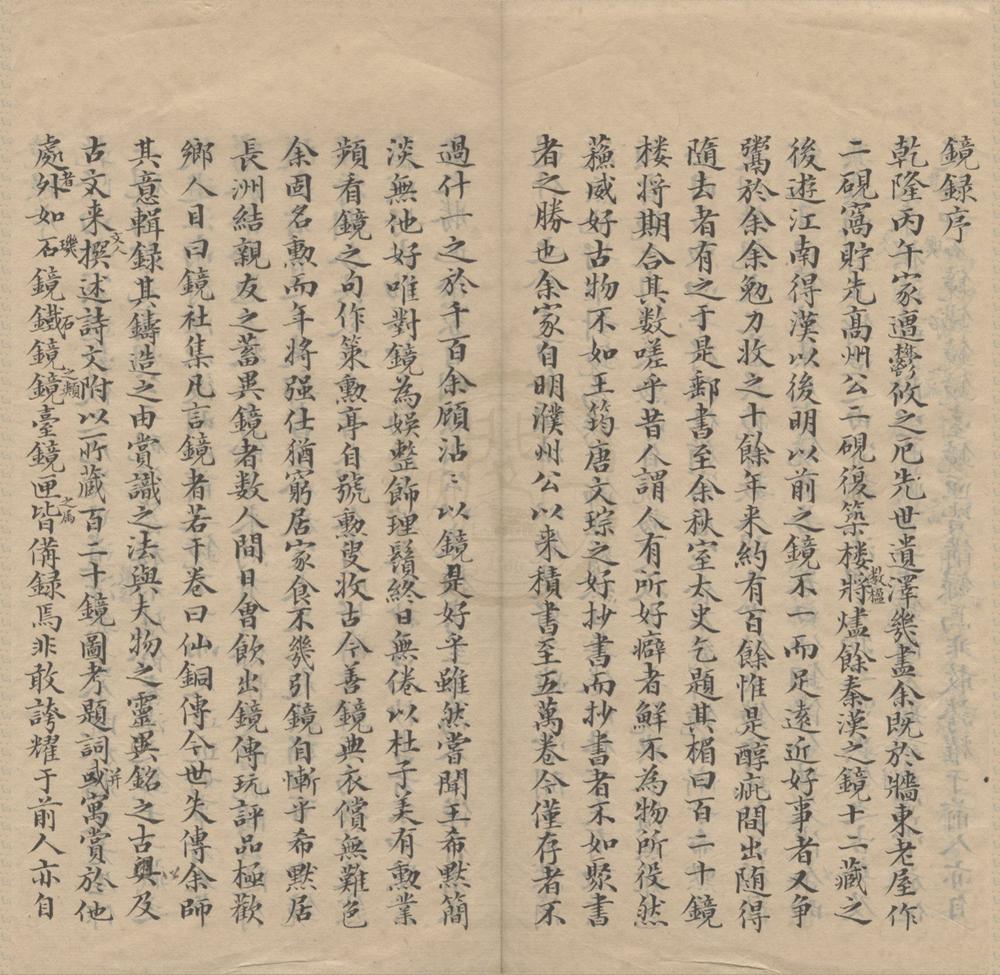 鏡録序
乾隆丙午家遭鬱攸之厄先世遺澤幾盡余既於牆東老屋作
二硯窩貯先高州公二硯復築楼數楹將燼餘秦漢之鏡十二藏之
後遊江南得漢以後明以前之鏡不一而足遠近好事者又争
鬻於余余勉力收之十餘年来約有百餘惟是醇疵間出随得
隨去者有之于是郵書至余秋室太史乞題其楣曰百二十鏡
楼將期合其数嗟乎昔人謂人有所好癖者鮮不為物所役然
蘓威好古物不如王筠唐文琮之好抄書而抄書者不如聚書
者之勝也余家自明濮州公以来積書至五萬卷今僅存者不
過什一之於千百余顧沾沾以鏡是好乎雖然嘗聞王希默簡
淡無他好唯對鏡為娯整飾理鬚終日無倦以杜子美有勳業
頻看鏡之句作策勳亭自號勳叟收古今善鏡典衣償無難色
余固名勳而年將强仕猶窮居家食不幾引鏡自慚乎希默居
長洲結親友之蓄異鏡者数人間日會飲出鏡傳玩評品極歡
鄉人目曰鏡社集凡言鏡者若干卷曰仙銅傳今世失傳余師
其意輯録其鑄造之由賞識之法與夫物之靈異銘之古奥以及
古文来文人撰述詩文附以所藏百二十鏡圖考題詞并寓賞於他
處者外如璣石鏡石鐵鏡之類鏡臺鏡匣之属皆偹録焉非敢誇耀于前人亦自